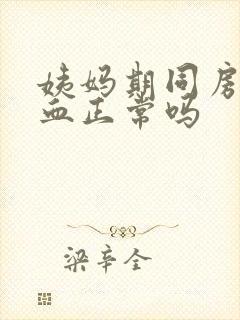 姨妈期同房
血正常吗
梁辛全